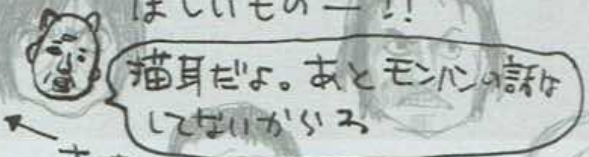 ほしいものー!!
猫耳だよ。あとモンハンの話は
してないからね